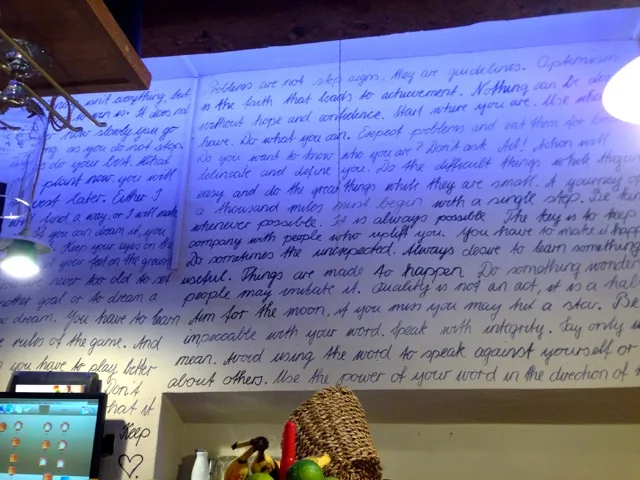 Problems are not stop signs, they are guidelines. Optimism
is the faith that leads to achievement. Nothing can be done
without hope and confidence. Start where you are. Use what
have. Do what you can. Expect problems and eat them for
Do you want to know who you are? Don't ask. Act! Action will
delineate and define you. Do the difficult things while they are
easy and do the great things while they are small. A journey of
a thousand miles must begin with a single step. Be
whenever possible. It is always possible. The key is to keep
company with people who uplift you. You have to make it happen
Do sometimes the unexpected. Always desire to learn something
useful. Things are made to happen. Do something wonder
people may imitate it. Quality is not an act, it is a hab
Aim for the moon, if you miss you may hit a star. Be
impeccable with your word. Speak with integrity. Say only
mean. Avoid using the word to speak against yourself or
about others. Use the power of your word in the direction of
isn't everything, but
It does not
how slowly you go
as you do not stop.
do your best. What
plant now, you will
later. Either I
find a way, or I will make
if you can dream it, you
Keep your eyes on the
your feet on the ground
never too old to set
another goal or to dream a
dream. You have to learn
rules of the game. And
you have to play better
Don't
that it
Keep